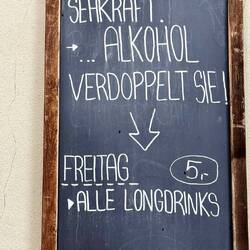 SEHKRAFT.
→ ... ALKOHOL
VERDOPPELT SIE!
FREITAG 5,-
▸ ALLE LONGDRINKS